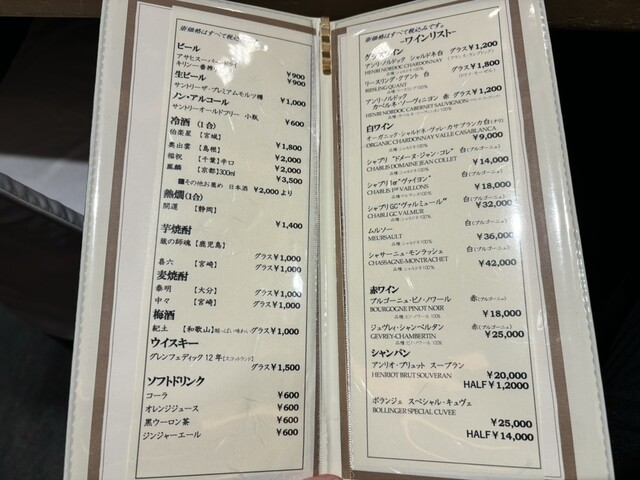 ※価格はすべて税込みです。
ビール
アサヒスーパードライ ¥900
キリン一番搾り ¥900
生ビール
サントリーザ・プレミアムモルツ樽 ¥1,000
ノン・アルコール
サントリーオールフリー 小瓶 ¥600
冷酒 (1合)
伯楽星 【宮城】 ¥1,800
奥出雲 【島根】 ¥2,000
福祝 【千葉】辛口 ¥2,000
鳳麟 【京都】300ml ¥3,500
■その他お薦め 日本酒 ¥2,000より
熱燗(1合)
開運 【静岡】 ¥1,400
芋焼酎
蔵の師魂【鹿児島】 グラス¥1,000
喜六 【宮崎】 グラス¥1,000
麦焼酎
泰明 【大分】 グラス¥1,000
中々 【宮崎】 グラス¥1,000
梅酒
紀土 【和歌山】 グラス¥1,000
ウイスキー
グレンフェディック 12年[スコットランド]
グラス¥1,500
ソフトドリンク
コーラ ¥600
オレンジジュース ¥600
黒ウーロン茶 ¥600
ジンジャーエール ¥600
※価格はすべて税込みです。
-ワインリスト-
グラスワイン
アンリ・ノルドック シャルドネ 白 グラス¥1,200
HENRI NORDOC CHARDONNAY
品種:シャルドネ100%
リースリング・クアント 白 グラス¥1,800
RIESLING QUANT
アンリ・ノルドック
カベルネ・ソーヴィニヨン 赤 グラス¥1,200
HENRI NORDOC CABERNET SAUVIGNON
白ワイン
オーガニック・シャルドネ・ヴァレ・カサブランカ 白(チリ)
ORGANIC CHARDONNAY VALLE CASABLANCA ¥9,000
品種:シャルドネ100%
シャブリ "ドメーヌ・ジャン・コレ" 白(ブルゴーニュ)
CHABLIS DOMAINE JEAN COLLET ¥14,000
品種:シャルドネ100%
シャブリ1er"ヴァイヨン" 白(ブルゴーニュ)
CHABLIS 1er VAILLONS ¥18,000
シャブリGC"ヴァルミュール" 白(ブルゴーニュ)
CHABLI GC VALMUR ¥32,000
品種:シャルドネ100%
ムルソー 白(ブルゴーニュ)
MEURSAULT ¥36,000
品種:シャルドネ100%
シャサーニュ・モンラッシェ 白(ブルゴーニュ)
CHASSAGNE-MONTRACHET ¥42,000
品種:シャルドネ100%
赤ワイン
ブルゴーニュ・ピノ・ノワール 赤(ブルゴーニュ)
BOURGOGNE PINOT NOIR ¥18,000
品種:ピノ・ノワール 100%
ジュヴレイ・シャンベルタン 赤(ブルゴーニュ)
GEVREY-CHAMBERTIN ¥25,000
品種:ピノ・ノワール100%
シャンパン
アンリオ・ブリュット スーブラン
HENRIOT BRUT SOUVERAN ¥20,000
HALF¥1,2000
ボランジェ スペシャル・キュヴェ
BOLLINGER SPECIAL CUVEE ¥25,000
HALF¥14,000